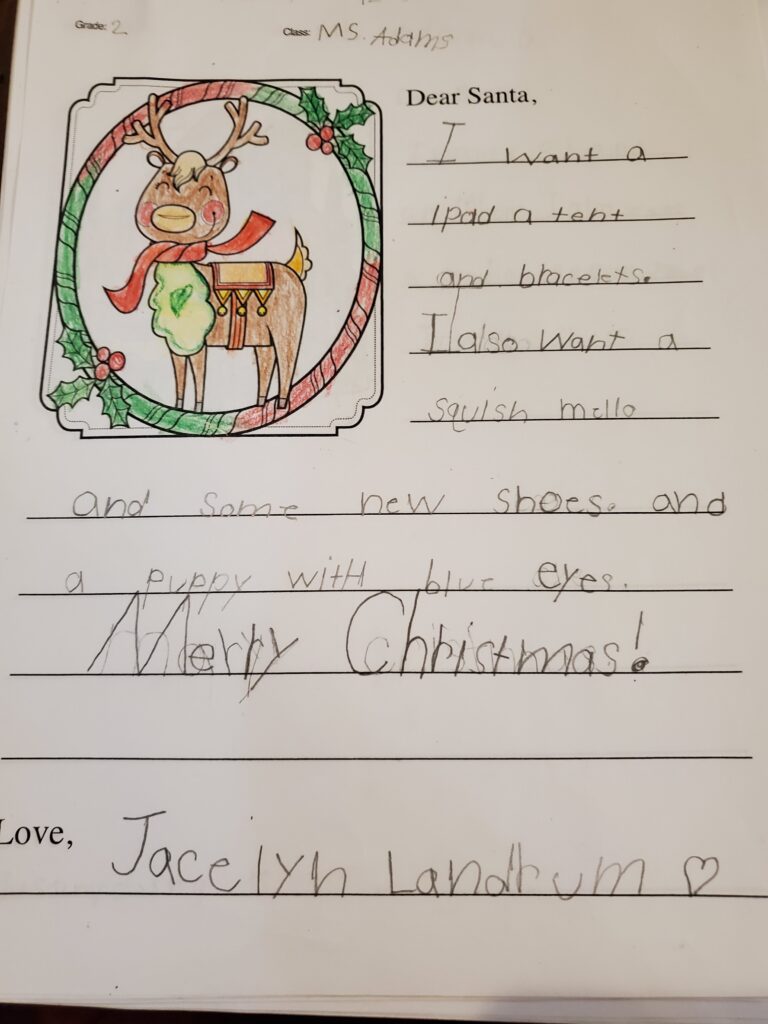 Grade: 2 Class: MS. Adams
Dear Santa,
I want a
ipad a tent
and bracelets.
I also want a
squish mello
and some new shoes. and
a puppy witH blue eyes.
Merry Christmas!
Love, Jacelyn Landrum ♡